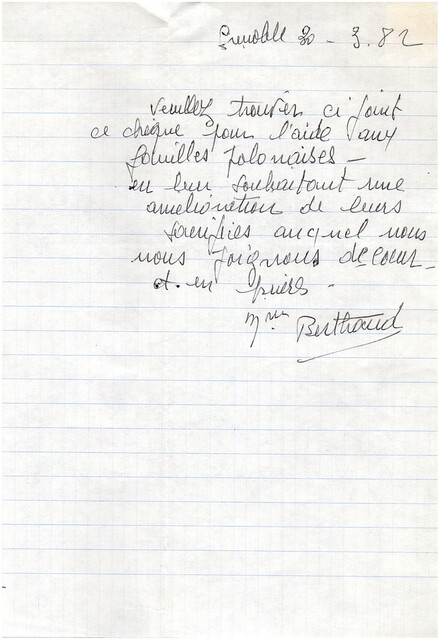 Grenoble 30 - 3. 82
Veuillez trouver ci joint
ce chèque pour l'aide aux
familles polonaises -
en leur souhaitant une
amélioration de leurs
sacrifies auquel nous
nous joignons de coeur -
et. en prières -
Mme Berthaud